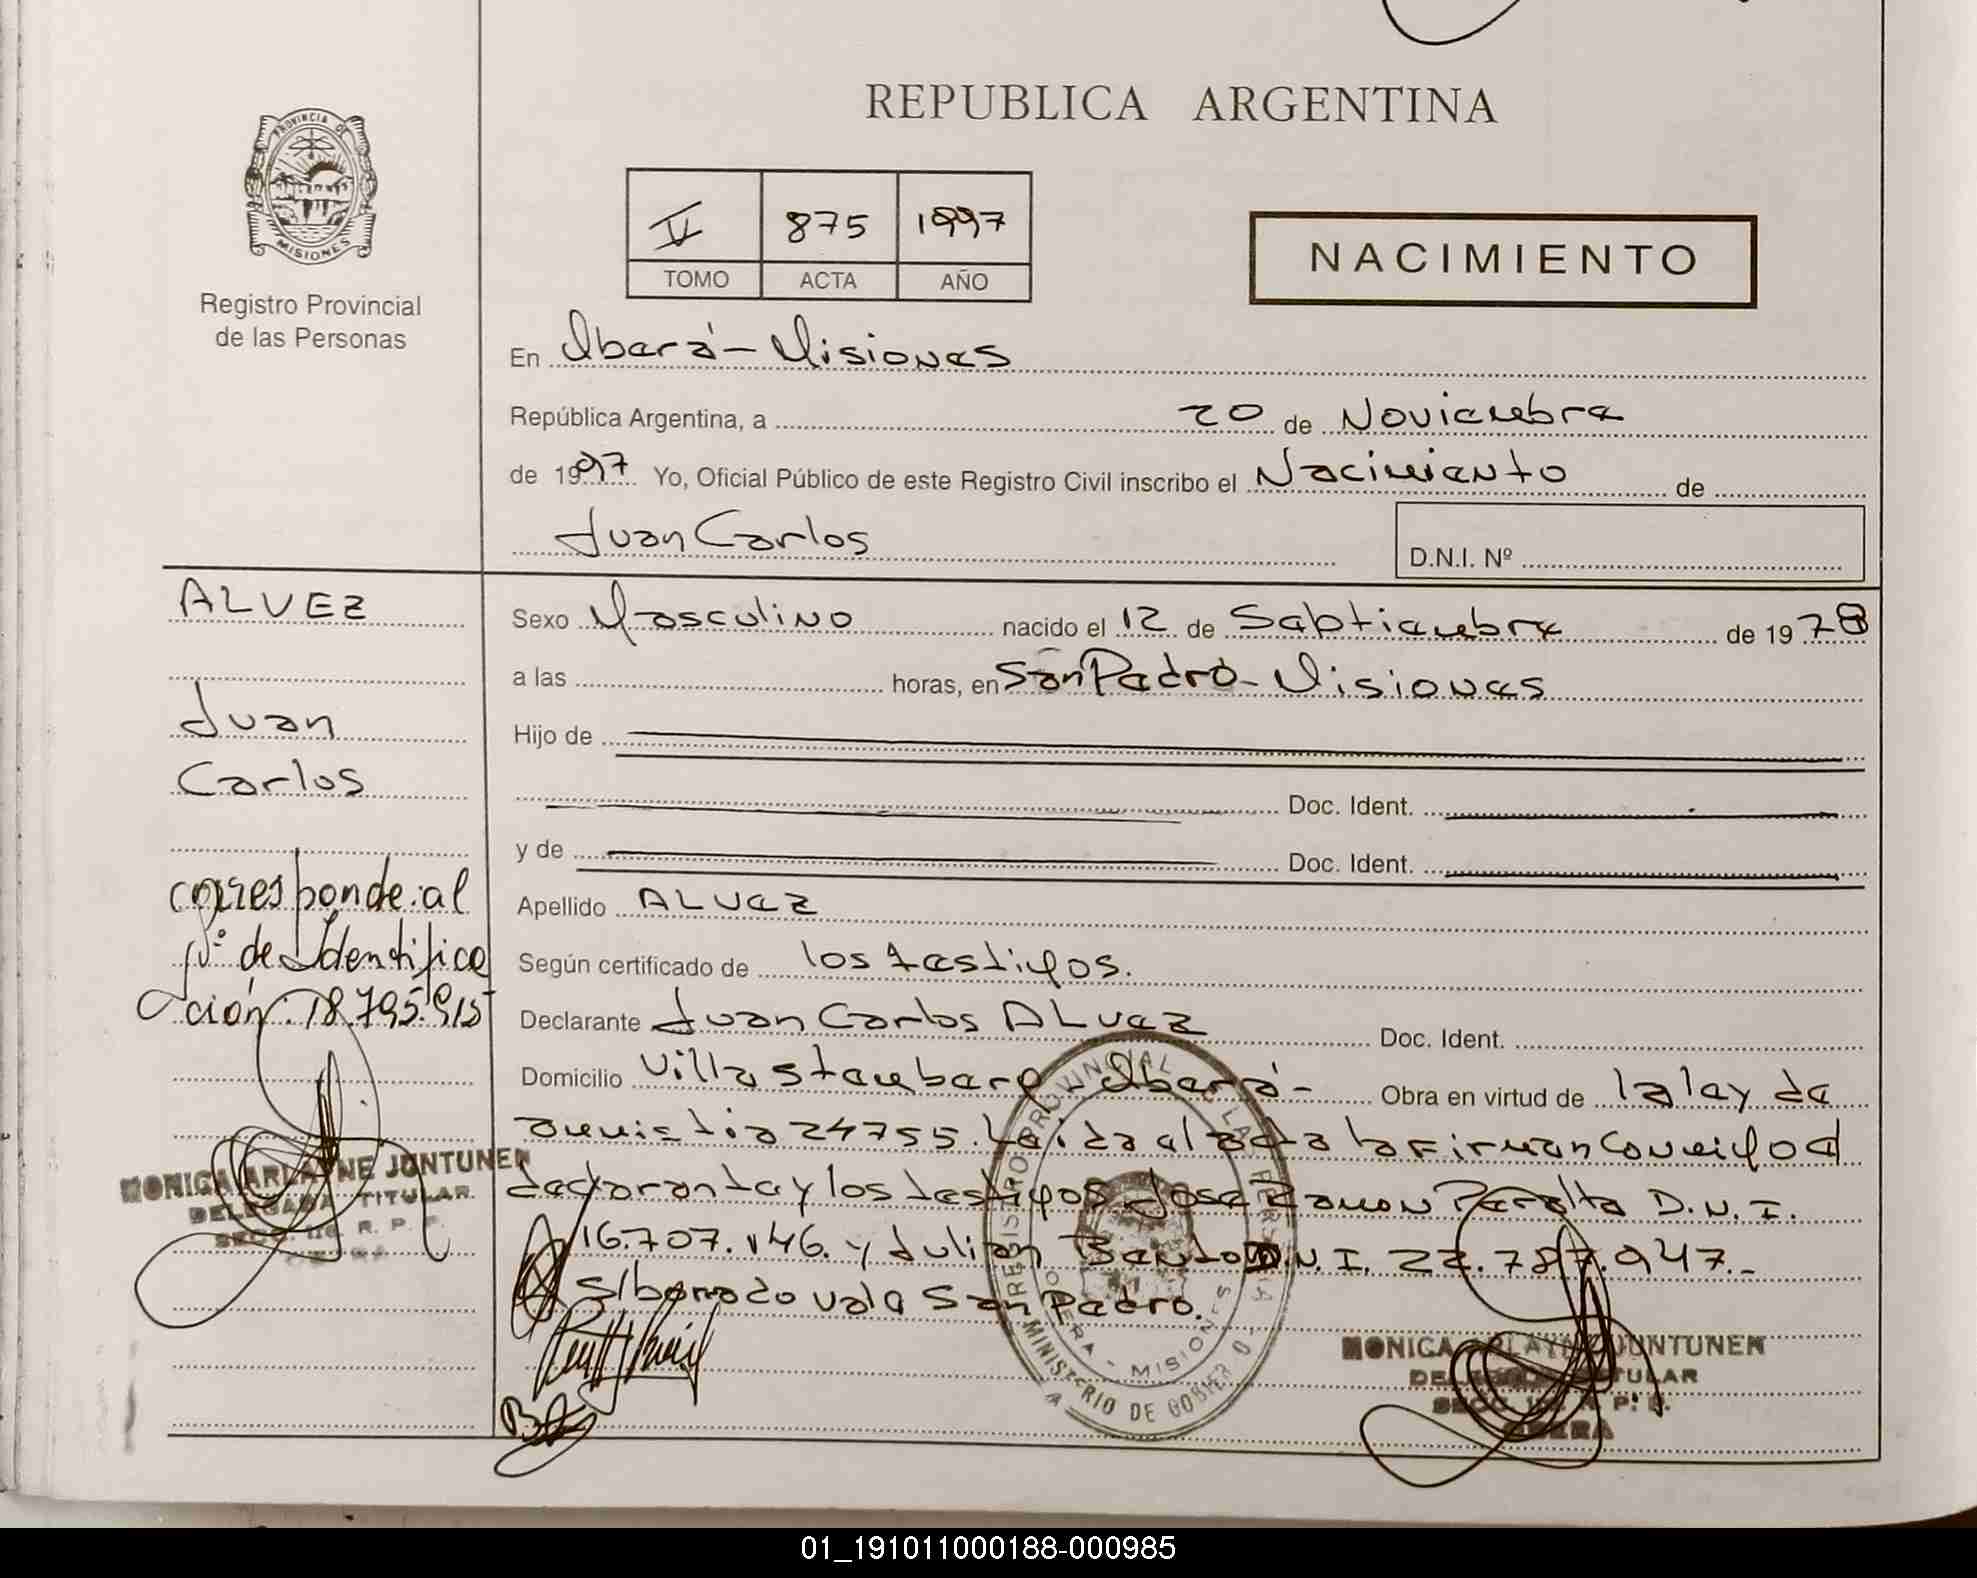 REPUBLICA ARGENTINA
PROVINCIA DE
MISIONES
Registro Provincial
de las Personas
II 875 1997
TOMO ACTA AÑO
NACIMIENTO
En Oberá - Misiones
República Argentina, a 20 de Noviembre
de 1997 Yo, Oficial Público de este Registro Civil inscribo el Nacimiento de
Juan Carlos
D.N.I. Nº
ALVEZ
Juan
Carlos
corresponde al
Nº de Identifica
ción: 18.795.915
MONICA ARLAYNE JUNTUNEN
DELEGADA TITULAR
SECC. R. P. P.
Sexo Masculino nacido el 12 de Septiembre de 1978
a las horas, en San Pedro - Misiones
Hijo de
Doc. Ident.
y de Doc. Ident.
Apellido ALVEZ
Según certificado de los testigos.
Declarante Juan Carlos ALVEZ Doc. Ident.
Domicilio Villa Stemberg - Oberá - Obra en virtud de la ley de
amnistia 24755. Leida el acta la firman conmigo el
declarante y los testigos Jose Ramon Peralta D.N.I.
16.707.146. y Julian Bento D.N.I. 22.787.947.-
S/borrado vale San Pedro.
REGISTRO PROVINCIAL DE LAS PERSONAS
OBERA - MISIONES
MINISTERIO DE GOBIERNO
MONICA ARLAYNE JUNTUNEN
DELEGADA TITULAR
SECC. R. P. P.
OBERA
01_191011000188-000985